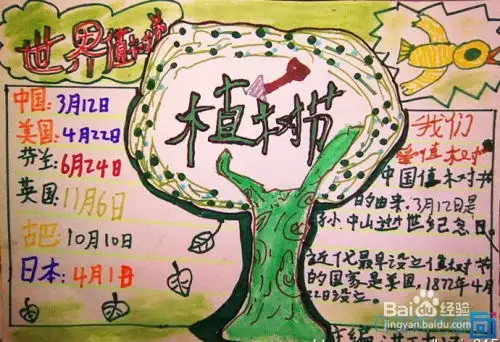 世界植树节
中国:3月12日
美国:4月22日
芬兰:6月24日
英国:11月6日
古巴:10月10日
日本:4月1日
植树节
我们
爱植树
中国植树节
的由来.3月12日是
孙中山逝世纪念日。
近代最早设立植树节
的国家是美国,1872年4月
22日设立。
Baidu经验
jingyan.baidu.com